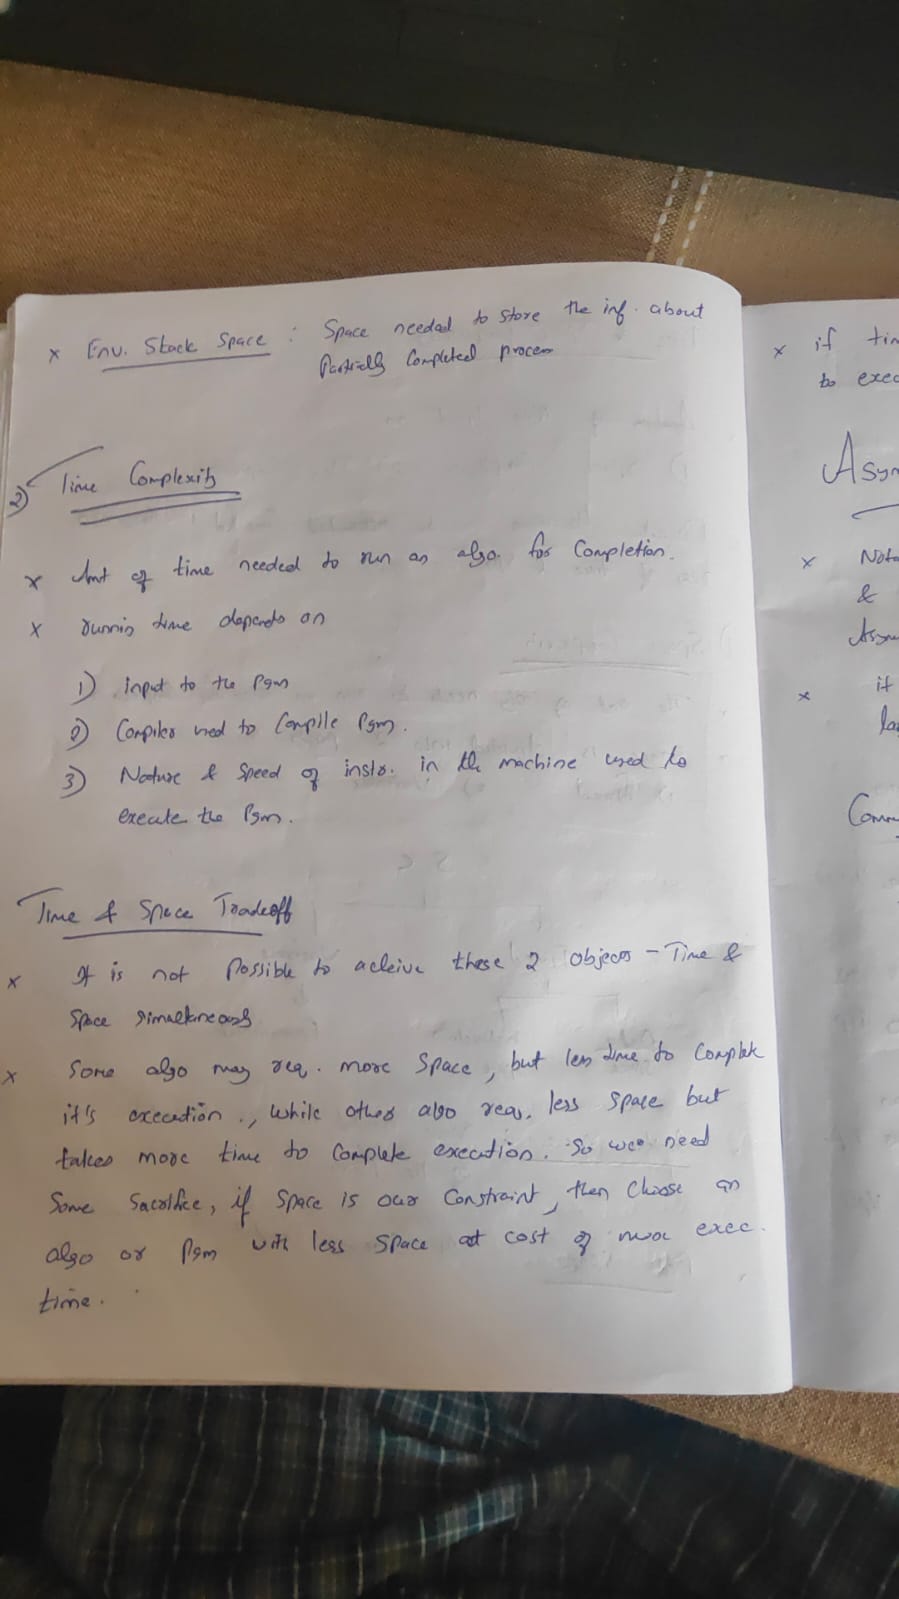 x Env. Stack Space : Space needed to store the inf. about
Partially Completed process
2) Time Complexity
x Amt of time needed to run an algo. for Completion.
x running time depends on
1) input to the Pgm
2) Compiler used to Compile Pgm.
3) Nature & Speed of instr. in the machine used to
execute the Pgm.
Time & Space Tradeoff
x It is not Possible to acheive these 2 objecs - Time &
Space simultaneously
x Some algo may req. more Space, but less time to Complete
it's execution., while other algo reqs. less space but
takes more time to Complete execution. So we need
Some Sacrifice, if Space is our Constraint, then Choose an
algo or Pgm with less Space at cost of more exec.
time.
x if tim
to exec
Asym
x Nota
&
Asym
x it
la
Comm